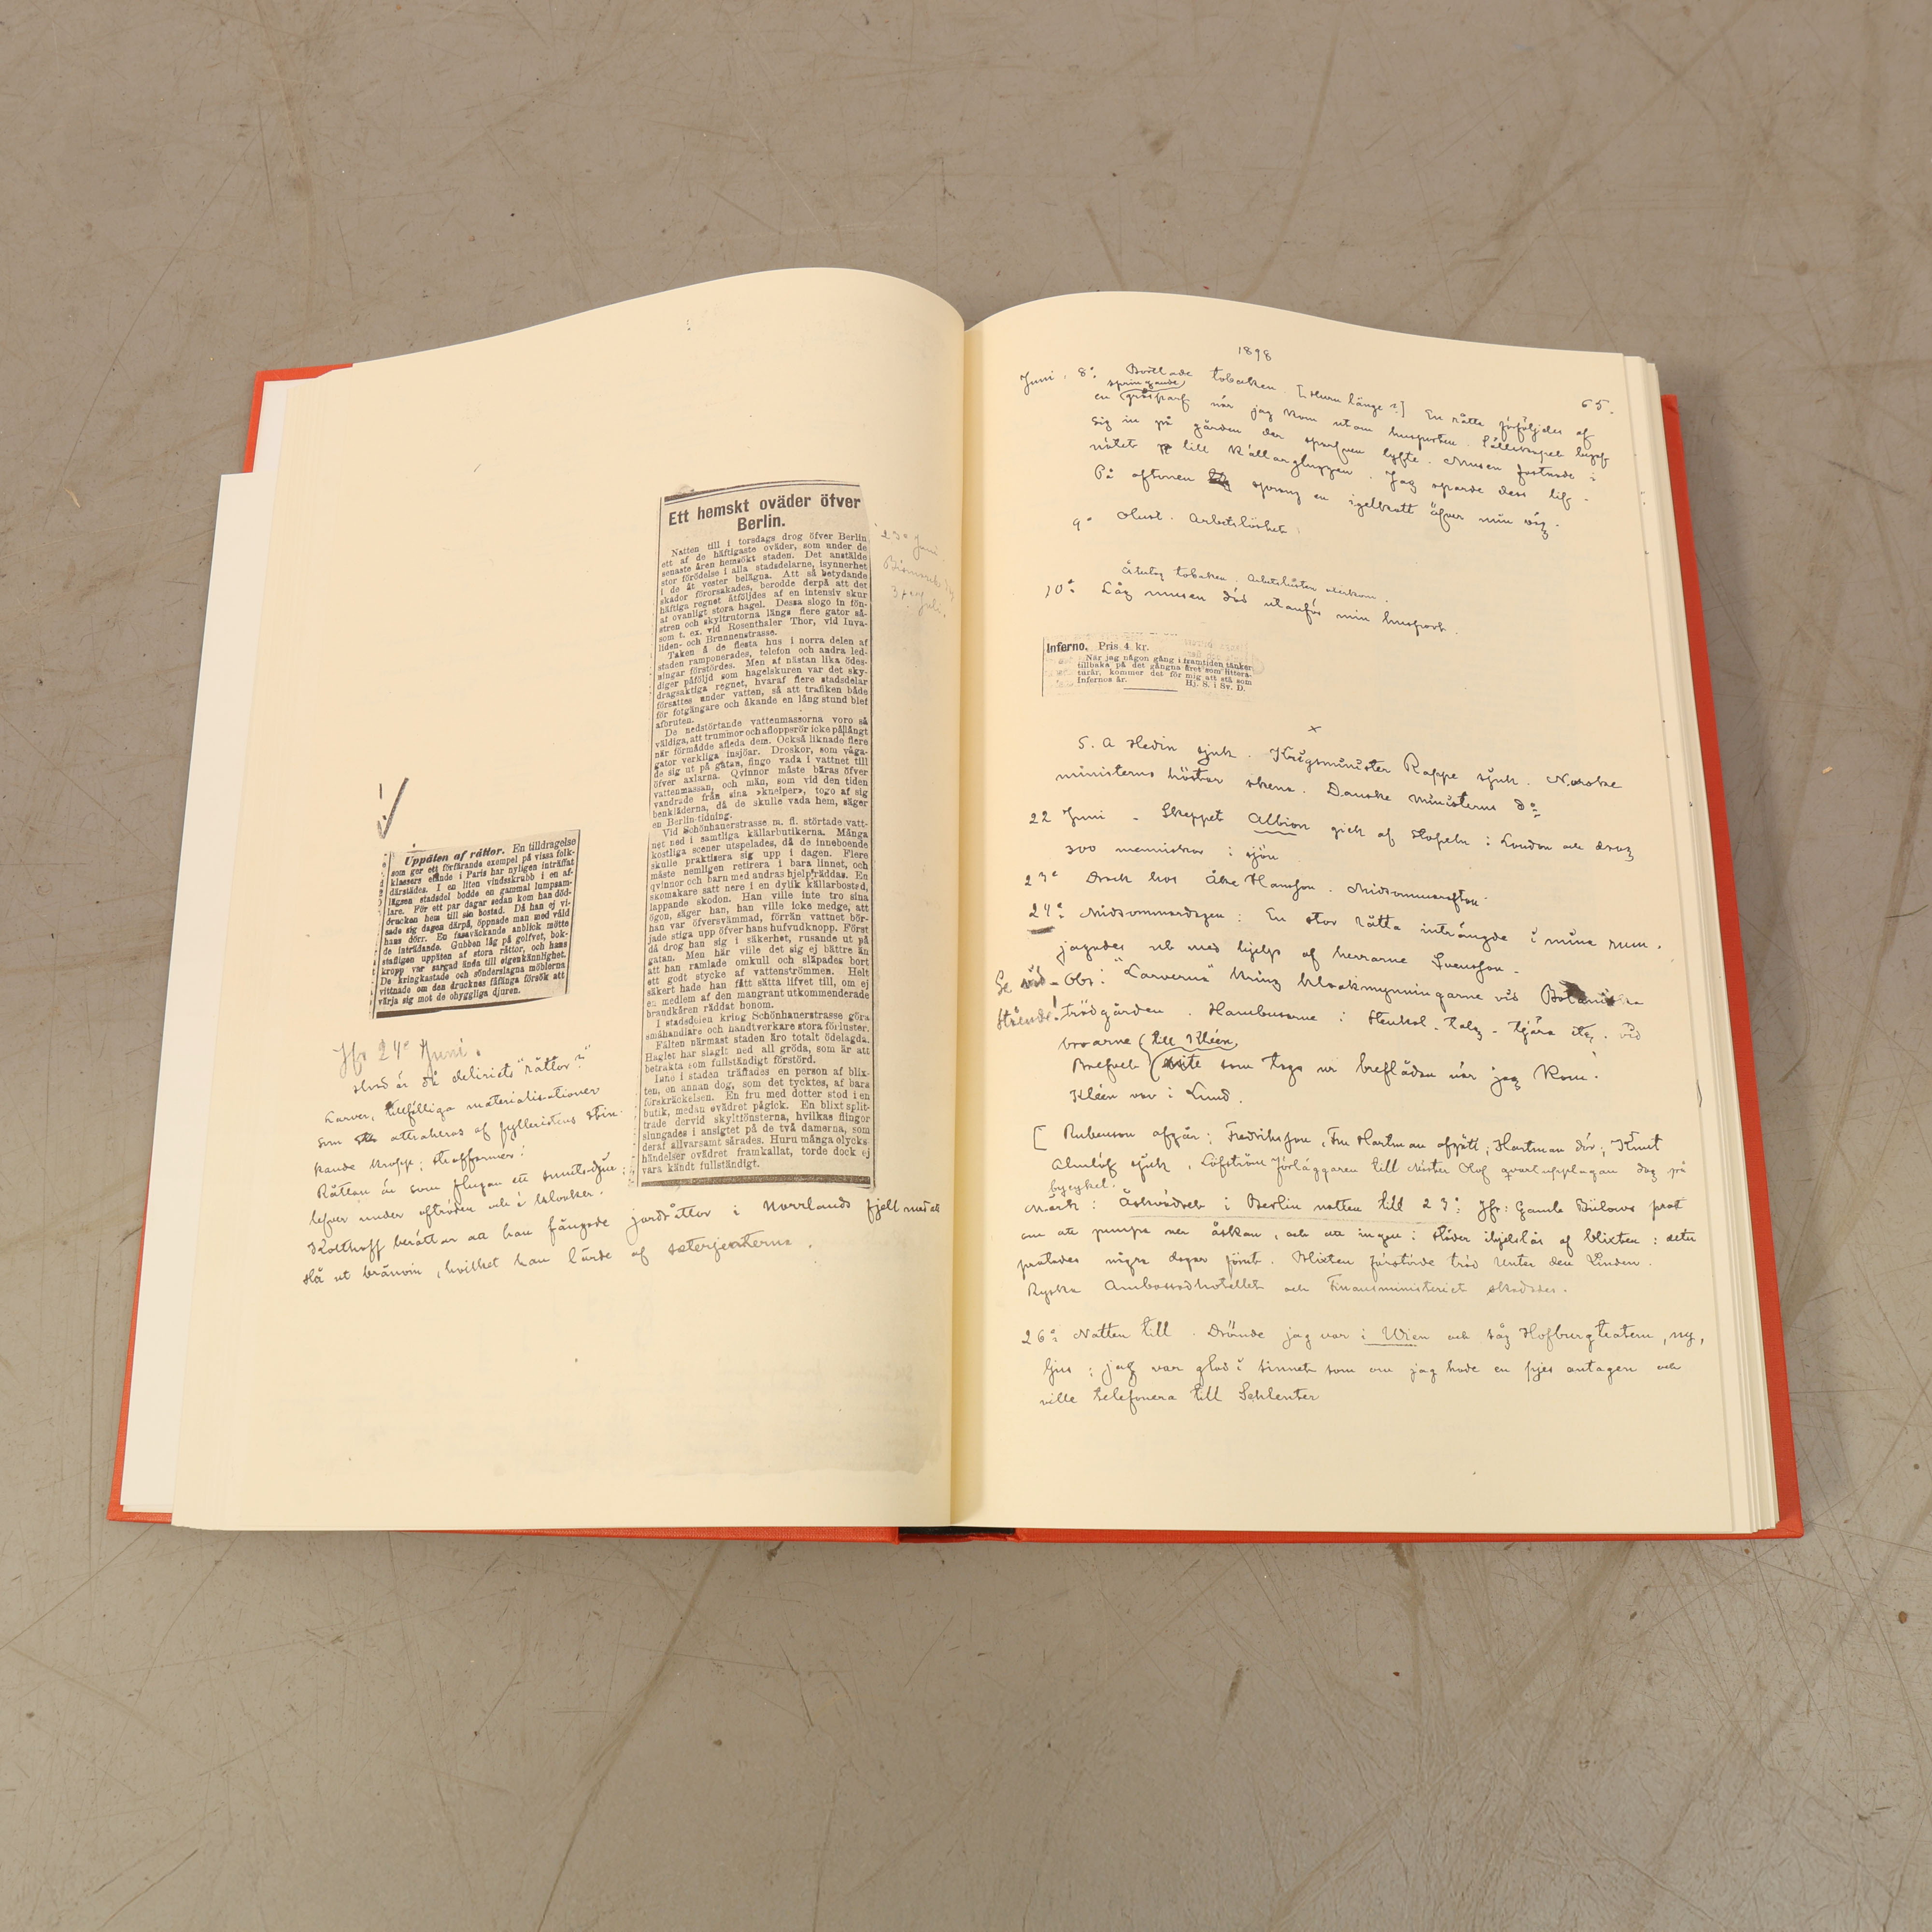 Ett hemskt oväder öfver
Berlin.
Natten till i torsdags drog öfver Berlin
ett af de häftigaste oväder, som under de
senaste åren hemsökt staden. Det anstälde
stor förödelse i alla stadsdelarne, isynnerhet
i de åt vester belägna. Att så betydande
skador förorsakades, berodde derpå att det
häftiga regnet åtföljdes af en intensiv skur
af ovanligt stora hagel. Dessa slogo in fön-
stren och skyltrutorna längs flere gator så-
som t. ex. vid Rosenthaler Thor, vid Inva-
liden- och Brunnenstrasse.
Taken å de flesta hus i norra delen af
staden ramponerades, telefon och andra led-
ningar förstördes. Men af nästan lika ödes-
diger påföljd som hagelskuren var det sky-
dragsaktiga regnet, hvaraf flere stadsdelar
försattes under vatten, så att trafiken både
för fotgängare och åkande en lång stund blef
afbruten.
De nedstörtande vattenmassorna voro så
väldiga, att trummor och afloppsrör icke på långt
när förmådde afleda dem. Också liknade flere
gator verkliga insjöar. Droskor, som våga-
de sig ut på gatan, fingo vada i vattnet till
öfver axlarna. Qvinnor måste bäras öfver
vattenmassan, och män, som vid den tiden
vandrade från sina »kneiper», togo af sig
benkläderna, då de skulle vada hem, säger
en Berlin-tidning.
Vid Schönhauerstrasse m. fl. störtade vatt-
net ned i samtliga källarbutikerna. Många
kostliga scener utspelades, då de inneboende
skulle praktisera sig upp i dagen. Flere
måste nemligen retirera i bara linnet, och
qvinnor och barn med andras hjelp räddas. En
skomakare satt nere i en dylik källarbostad,
lappande skodon. Han ville inte tro sina
ögon, säger han, han ville icke medge, att
han var öfversvämmad, förrän vattnet bör-
jade stiga upp öfver hans hufvudknopp. Först
då drog han sig i säkerhet, rusande ut på
gatan. Men här ville det sig ej bättre än
att han ramlade omkull och släpades bort
ett godt stycke af vattenströmmen. Helt
säkert hade han fått sätta lifvet till, om ej
en medlem af den mangrant utkommenderade
brandkåren räddat honom.
I stadsdelen kring Schönhauerstrasse göra
småhandlare och handtverkare stora förluster.
Fälten närmast staden äro totalt ödelagda.
Haglet har slagit ned all gröda, som är att
betrakta som fullständigt förstörd.
Inne i staden träffades en person af blix-
ten, en annan dog, som det tycktes, af bara
förskräckelsen. En fru med dotter stod i en
butik, medan ovädret pågick. En blixt split-
trade dervid skyltfönsterna, hvilkas flingor
slungades i ansigtet på de två damerna, som
deraf allvarsamt sårades. Huru många olycks-
händelser ovädret framkallat, torde dock ej
vara kändt fullständigt.
23e Juni.
Bismarcks dog
Juli.
Uppäten af råttor. En tilldragelse
som ger ett förfärande exempel på vissa folk-
klassers elände i Paris har nyligen inträffat
därstädes. I en liten vindsskrubb i en af-
lägsen stadsdel bodde en gammal lumpsam-
lare. För ett par dagar sedan kom han död-
drucken hem till sin bostad. Då han ej vi-
sade sig dagen därpå, öppnade man med våld
hans dörr. En fasaväckande anblick mötte
de inträdande. Gubben låg på golfvet, bok-
stafligen uppäten af stora råttor, och hans
kropp var sargad ända till oigenkännlighet.
De kringkastade och sönderslagna möblerna
vittnade om den drucknes fåfänga försök att
värja sig mot de ohyggliga djuren.
Jfr 24e Juni.
Hvad är då deliriets "råttor?"
Larver, tillfälliga materialisationer
som attraheras af fylleristens stin-
kande kropp; straffformer!
Råttan är som flugan ett smutsdjur:
lefver under afträden och i kloaker.
Kolthoff berättar att han fångade jordråttor i Norrlands fjell med att
slå ut bränvin, hvilket han lärde af säterjenterna.
1898
65.
Juni. 8e Bortlade tobaken. [Huru länge?] En råtta förföljdes af
springande
en gråsparf när jag kom utom husporten. Sällskapet begaf
sig in på gården der sparfven lyfte. Musen fastnade i
nätet till källargluggen. Jag sparde dess lif.
På aftonen sprang en igelkott öfver min väg.
9e Olust. Arbetslöshet.
Återtog tobaken. Arbetslusten återkom.
10e Låg musen död utanför min husport.
Inferno. Pris 4 kr.
När jag någon gång i framtiden tänker
tillbaka på det gångna året som littera-
turår, kommer det för mig att stå som
Infernos år. Hj. S. i Sv. D.
x
S. A Hedin sjuk. Krigsminister Rappe sjuk. Norske
ministerns hästar skena. Danske Ministerns do
22 Juni - Skeppet Albion gick af stapeln i London och drog
300 menniskor i sjön
23e Drack hos Åke Hansson. Midsommarafton.
24e Midsommardagen: En stor råtta inträngde i mina rum.
jagades ut med hjelp af herrarne Svensson.
Se vid- Obs: "Larverna" kring kloakmynningarne vid Botaniska
stående! trädgården. Hambusarne i Stenkol. talg - tjära etc. vid
broarne
(till Kléen)
Brefvet som togs ur breflådan när jag kom.
Kléen var i Lund.
[ Rubenson afgår; Fredriksson, Fru Hartman afgått; Hartman dör; Knut
Almlöf sjuk, Löfström förläggaren till Mäster Olof qvartupplagan dog på
bycykel.
Märk: Åskvädret i Berlin natten till 23e: Jfr: Gamle Bülows prat
om att pumpa ner åskan, och att ingen i städer ihjelslås af blixten: detta
pratades några dagar förut. Blixten förstörde träd Unter den Linden.
Ryska Ambassadhotellet och Finansministeriet skadades.
26e Natten till. Drömde jag var i Wien och såg Hofburgteatern, ny,
ljus; jag var glad i sinnet som om jag hade en pjes antagen och
ville telefonera till Schlenter